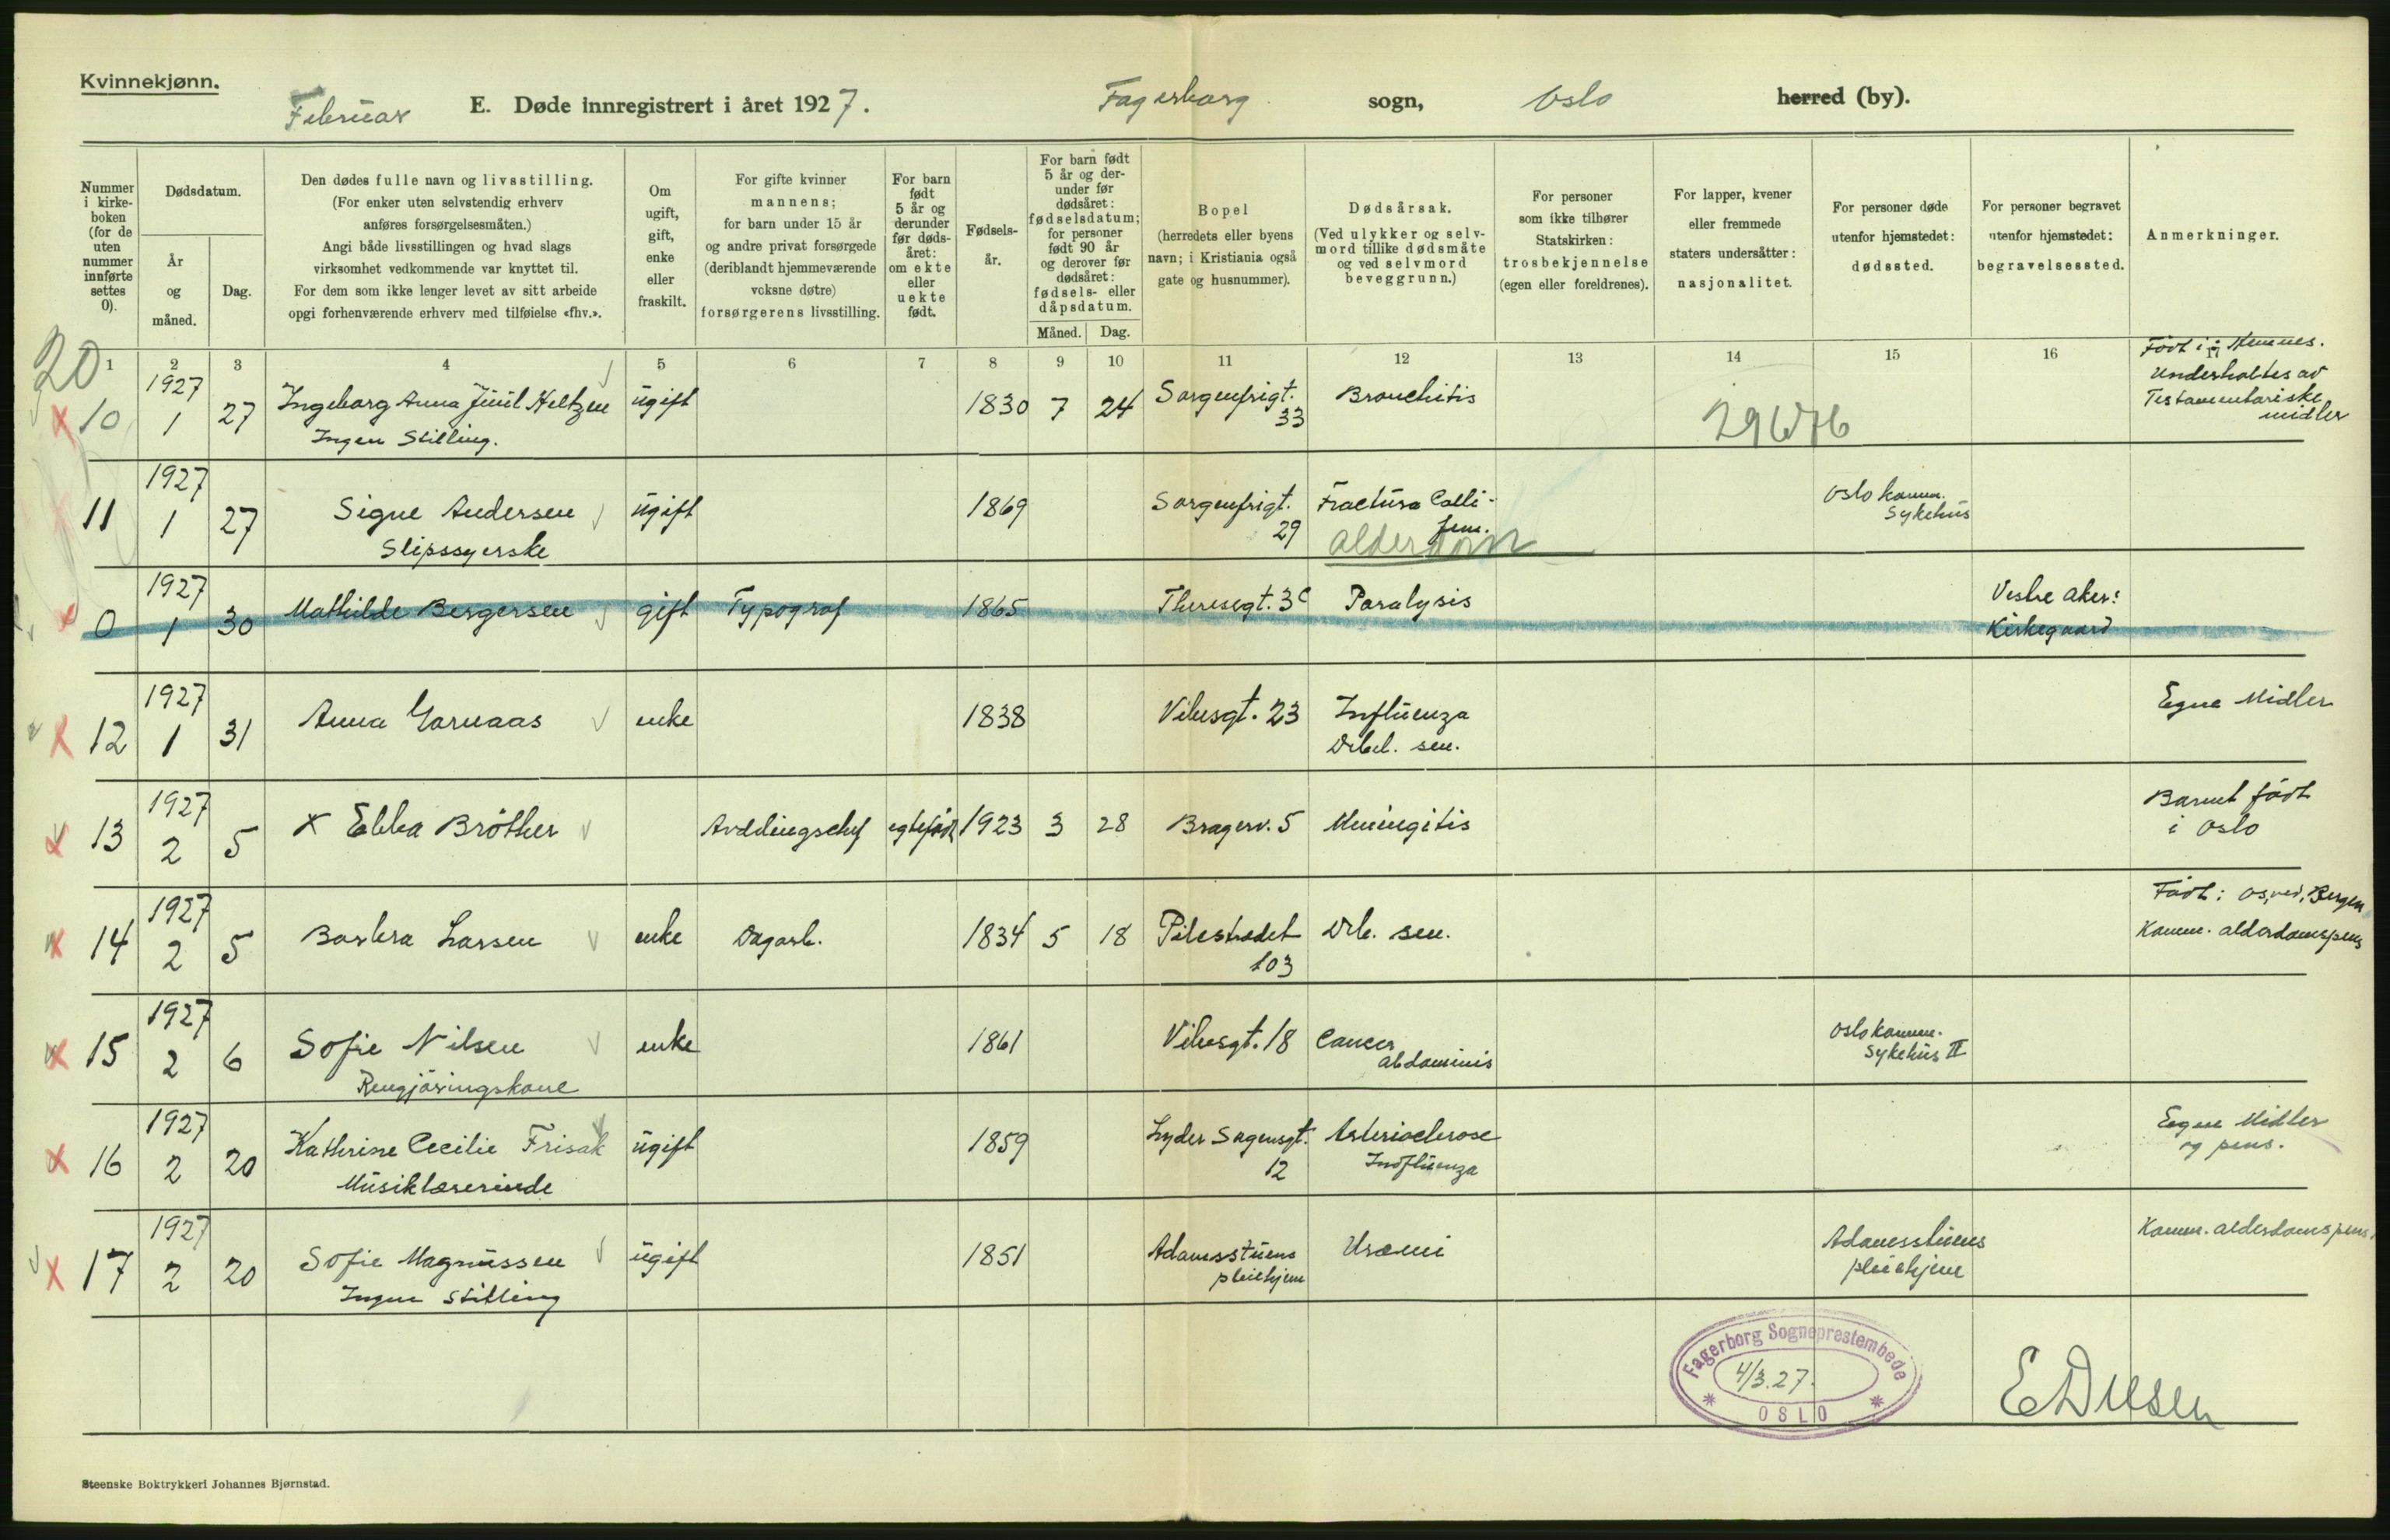 Kvinnekjønn.
Februar E. Døde innregistrert i året 1927. Fagerborg sogn, Oslo herred (by).
Nummer i kirke-boken (for de uten nummer innførte settes 0).
Dødsdatum.
År og måned.
Dag.
Den dødes fulle navn og livsstilling.
(For enker uten selvstendig erhverv
anføres forsørgelsesmåten.)
Angi både livsstillingen og hvad slags
virksomhet vedkommende var knyttet til.
For dem som ikke lenger levet av sitt arbeide
opgi forhenværende erhverv med tilføielse «fhv.».
Om ugift, gift, enke eller fraskilt.
For gifte kvinner
mannens;
for barn under 15 år
og andre privat forsørgede
(deriblandt hjemmeværende
voksne døtre)
forsørgerens livsstilling.
For barn født 5 år og derunder før døds-året: om ekte eller uekte født.
Fødsels-år.
For barn født
5 år og der-
under før
dødsåret:
fødselsdatum;
for personer
født 90 år
og derover før
dødsåret:
fødsels- eller
dåpsdatum.
Måned. Dag.
Bopel
(herredets eller byens
navn; i Kristiania også
gate og husnummer).
Dødsårsak.
(Ved ulykker og selv-
mord tillike dødsmåte
og ved selvmord
beveggrunn.)
For personer
som ikke tilhører
Statskirken:
trosbekjennelse
(egen eller foreldrenes).
For lapper, kvener
eller fremmede
staters undersåtter:
nasjonalitet.
For personer døde
utenfor hjemstedet:
dødssted.
For personer begravet
utenfor hjemstedet:
begravelsessted.
Anmerkninger.
1 2 3 4 5 6 7 8 9 10 11 12 13 14 15 16 17
20
10 1927 1 27 Ingeborg Anna Juul Heltzen ugift 1830 7 24 Sorgenfrigt. 33 Bronchitis
Ingen Stilling.
29676
Født i Hemnes.
Underholdtes av
Testamentariske
midler
11 1927 1 27 Signe Andersen ugift 1869 Sorgenfrigt. 29 Fractura Colli fem. Oslo komm. Sykehus
Slipssyerske
alderdom
0 1927 1 30 Mathilde Bergersen gift Typograf 1865 Theresegt. 3c Paralysis Vestre Aker: Kirkegaard
12 1927 1 31 Anna Garnaas enke 1838 Vibesgt. 23 Influenza Debil. sen. Egne Midler
13 1927 2 5 x Ebba Bröther Avdelingschef egtefødt 1923 3 28 Bragerv. 5 Meningitis Barnet født i Oslo
14 1927 2 5 Barbra Larsen enke Dagarb. 1834 5 18 Pilestrædet 103 Deb. sen. Født: Os, ved, Bergen
Komm. alderdomspens
15 1927 2 6 Sofie Nilsen enke 1861 Vibesgt. 18 Cancer abdominis Oslo komm. Sykehus II
Rengjøringskone
16 1927 2 20 Kathrine Cecilie Frisak ugift 1859 Lyder Sagensgt. 12 Arteriosclerose Influenza Egne Midler og pens.
Musiklærerinde
17 1927 2 20 Sofie Magnussen ugift 1851 Adamsstuens pleiehjem Uræmi Adamsstuens pleiehjem Komm. alderdomspens.
Ingen Stilling
Fagerborg Sogneprestembede
4/3.27.
* OSLO *
Steenske Boktrykkeri Johannes Bjørnstad.